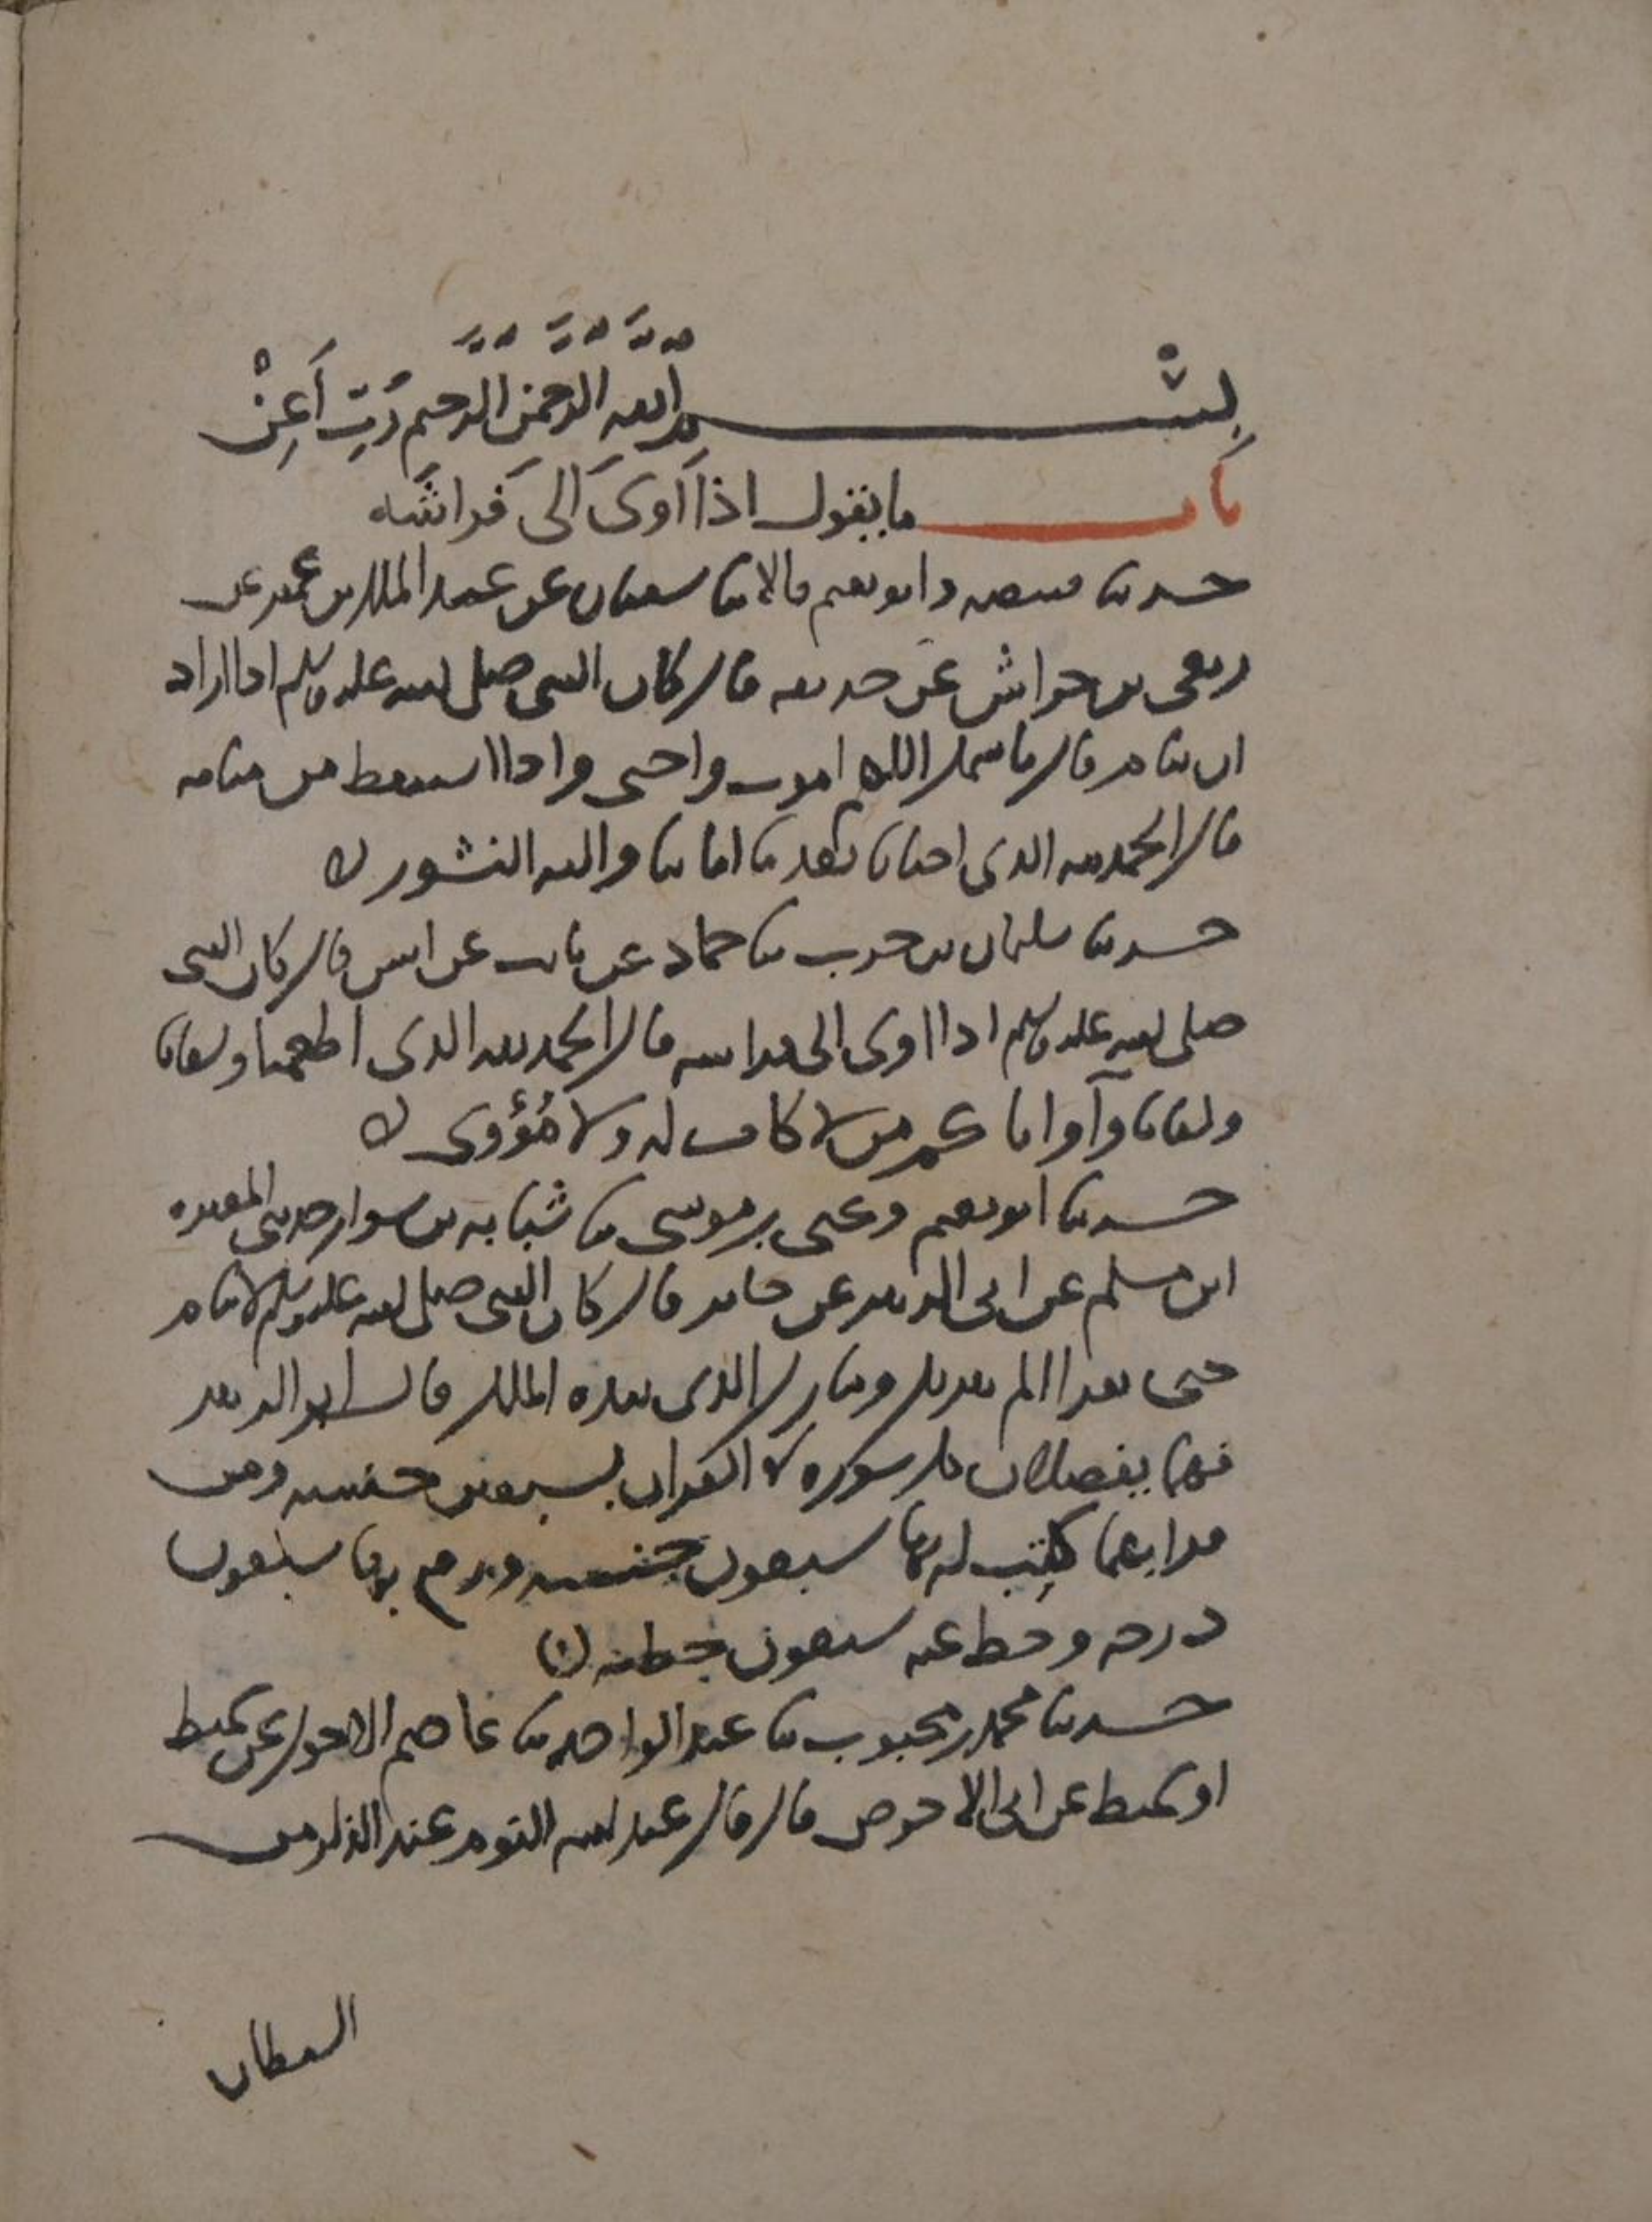 بِسْم الله الرحمن الرحيم رَبِّ أَعِنْ
باب ما يقول اذا اوى الى فراشه
حدثنا قبيصة وابو نعيم قالا ثنا سفيان عن عبد الملك بن عمير عن
ربعي بن حراش عن حذيفة قال كان النبي صلى الله عليه وسلم اذا اراد
ان ينام قال باسمك اللهم اموت واحيى واذا استيقظ من منامه
قال الحمد لله الذي احيانا بعد ما اماتنا واليه النشور
حدثنا سليمان بن حرب ثنا حماد عن ثابت عن انس قال كان النبي
صلى الله عليه وسلم اذا اوى الى فراشه قال الحمد لله الذي اطعمنا وسقانا
وكفانا وآوانا كم من لا كاف له ولا مُؤْوي
حدثنا ابو نعيم ويحيى بن موسى ثنا شبابه بن سوار حدثني المغيرة
ابن مسلم عن ابي الزبير عن جابر قال كان النبي صلى الله عليه وسلم لا ينام
حتى يقرا الم تنزيل وتبارك الذي بيده الملك قال ابو الزبير
فهما يفضلان كل سورة في القران بسبعين حسنة ومن
قراهما كتب له بهما سبعون حسنة ورفع بهما سبعون
درجة وحط عنه سبعون خطيئة
حدثنا محمد بن محبوب ثنا عبد الواحد ثنا عاصم الاحول عن سميط
او سميط عن ابي الاحوص قال قال عبد الله النوم عند الذكر من
الشيطان